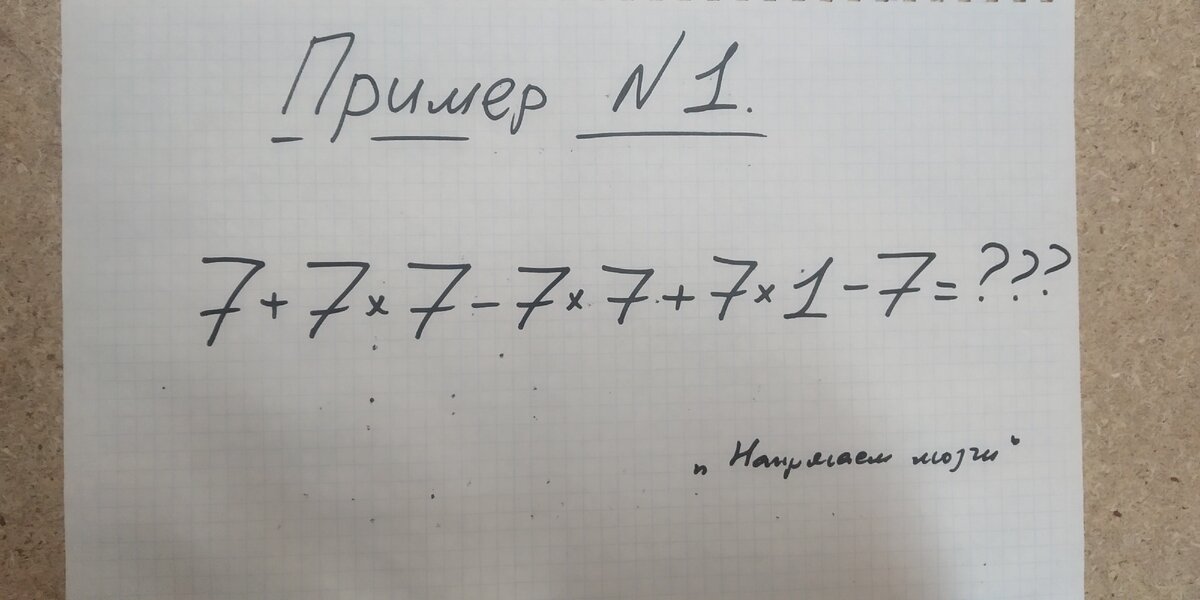 Пример N1.
7+7×7-7×7+7×1-7=???
„Напрягаем мозги“